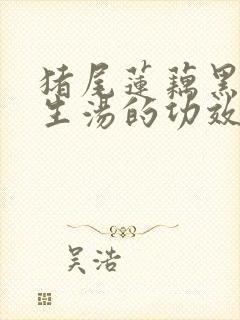 猪尾莲藕黑
生汤的功效
吴浩